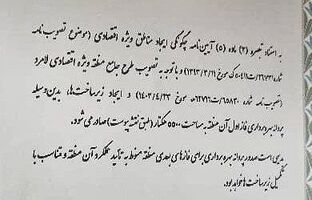 به استناد تبصره (۲) ماده (۵) آیین‌نامه چگونگی ایجاد مناطق ویژه اقتصادی (موضوع تصویب نامه
مورخ ۱۳۹۳/۳/۱۱) و با توجه به تصویب طرح جامع منطقه ویژه اقتصادی لامرد
(تصویب نامه شماره مورخ ۱۴۰۳/۴/۲۳) و ایجاد زیرساخت‌ها، بدین وسیله
پروانه بهره برداری فاز اول آن منطقه به مساحت ۵۵۰۰ هکتار (طبق نقشه پیوست) صادر می شود.
بدیهی است صدور پروانه بهره برداری برای فازهای بعدی منطقه منوط به تأیید عملکرد آن منطقه و متناسب با
تکمیل زیرساخت‌ها خواهد بود.